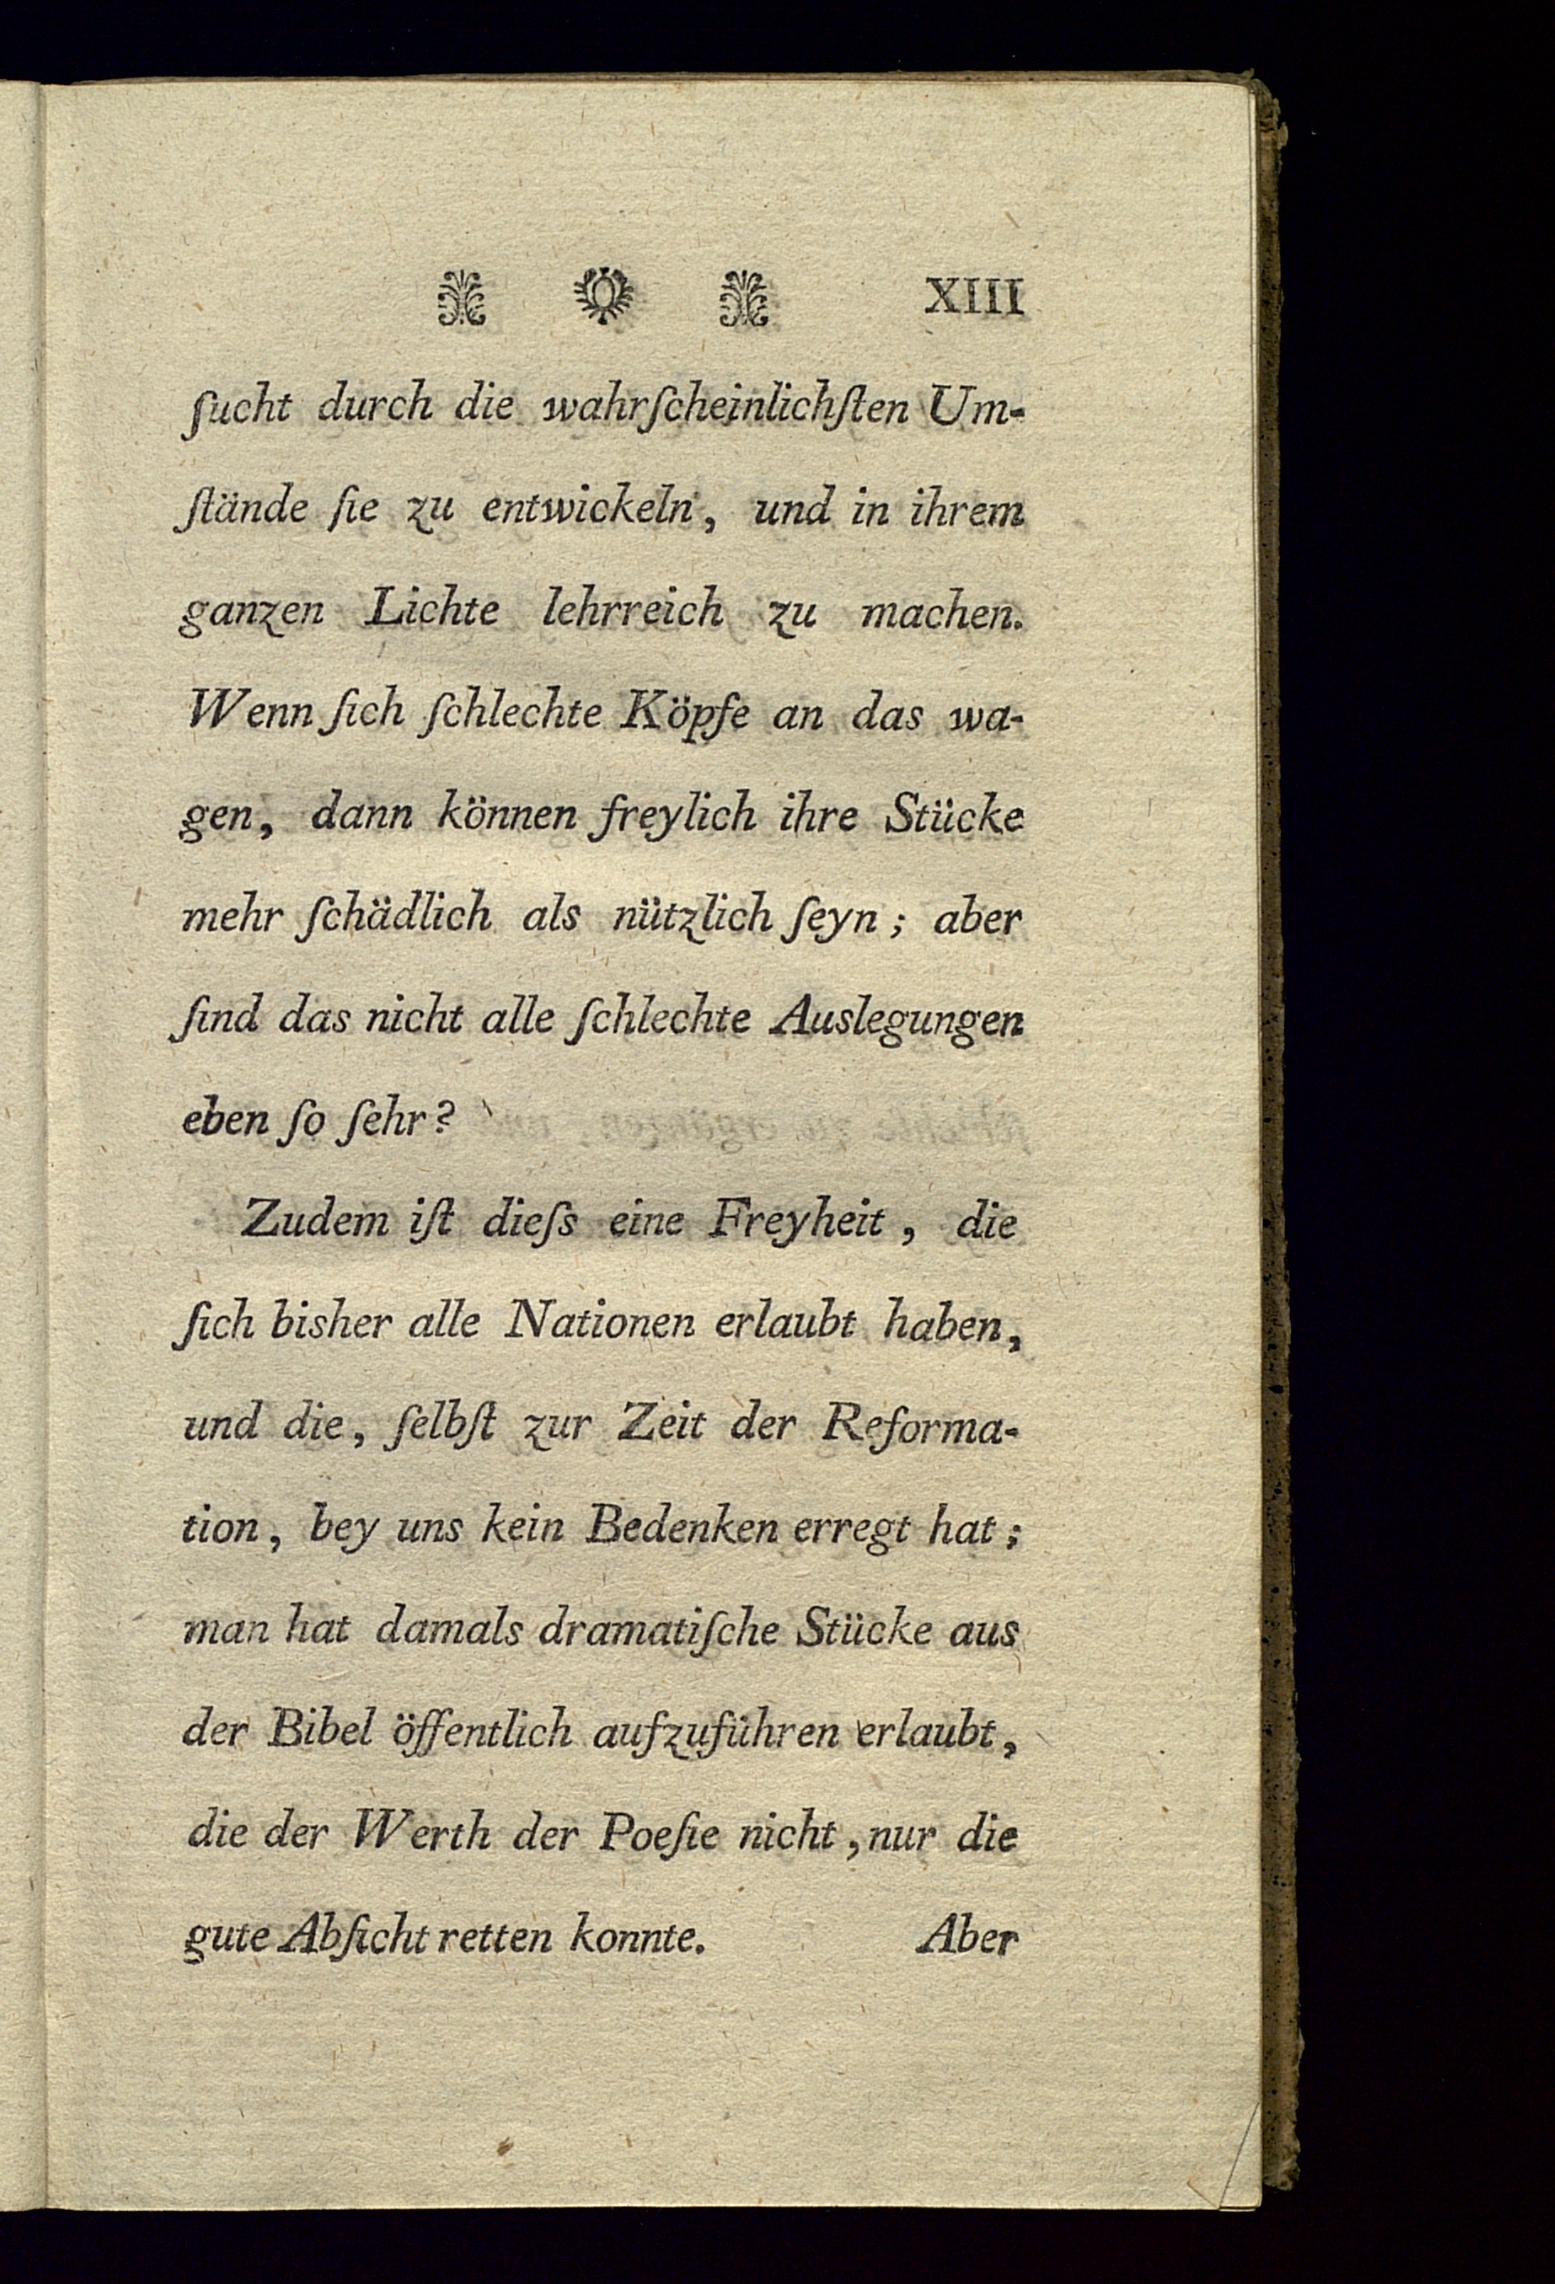 XIII
ſucht durch die wahrſcheinlichſten Um-
ſtände ſie zu entwickeln, und in ihrem
ganzen Lichte lehrreich zu machen.
Wenn ſich ſchlechte Köpfe an das wa-
gen, dann können freylich ihre Stücke
mehr ſchädlich als nützlich ſeyn; aber
ſind das nicht alle ſchlechte Auslegungen
eben ſo ſehr?
Zudem iſt dieſs eine Freyheit, die
ſich bisher alle Nationen erlaubt haben,
und die, ſelbſt zur Zeit der Reforma-
tion, bey uns kein Bedenken erregt hat;
man hat damals dramatiſche Stücke aus
der Bibel öffentlich aufzuführen erlaubt,
die der Werth der Poeſie nicht, nur die
gute Abſicht retten konnte. Aber